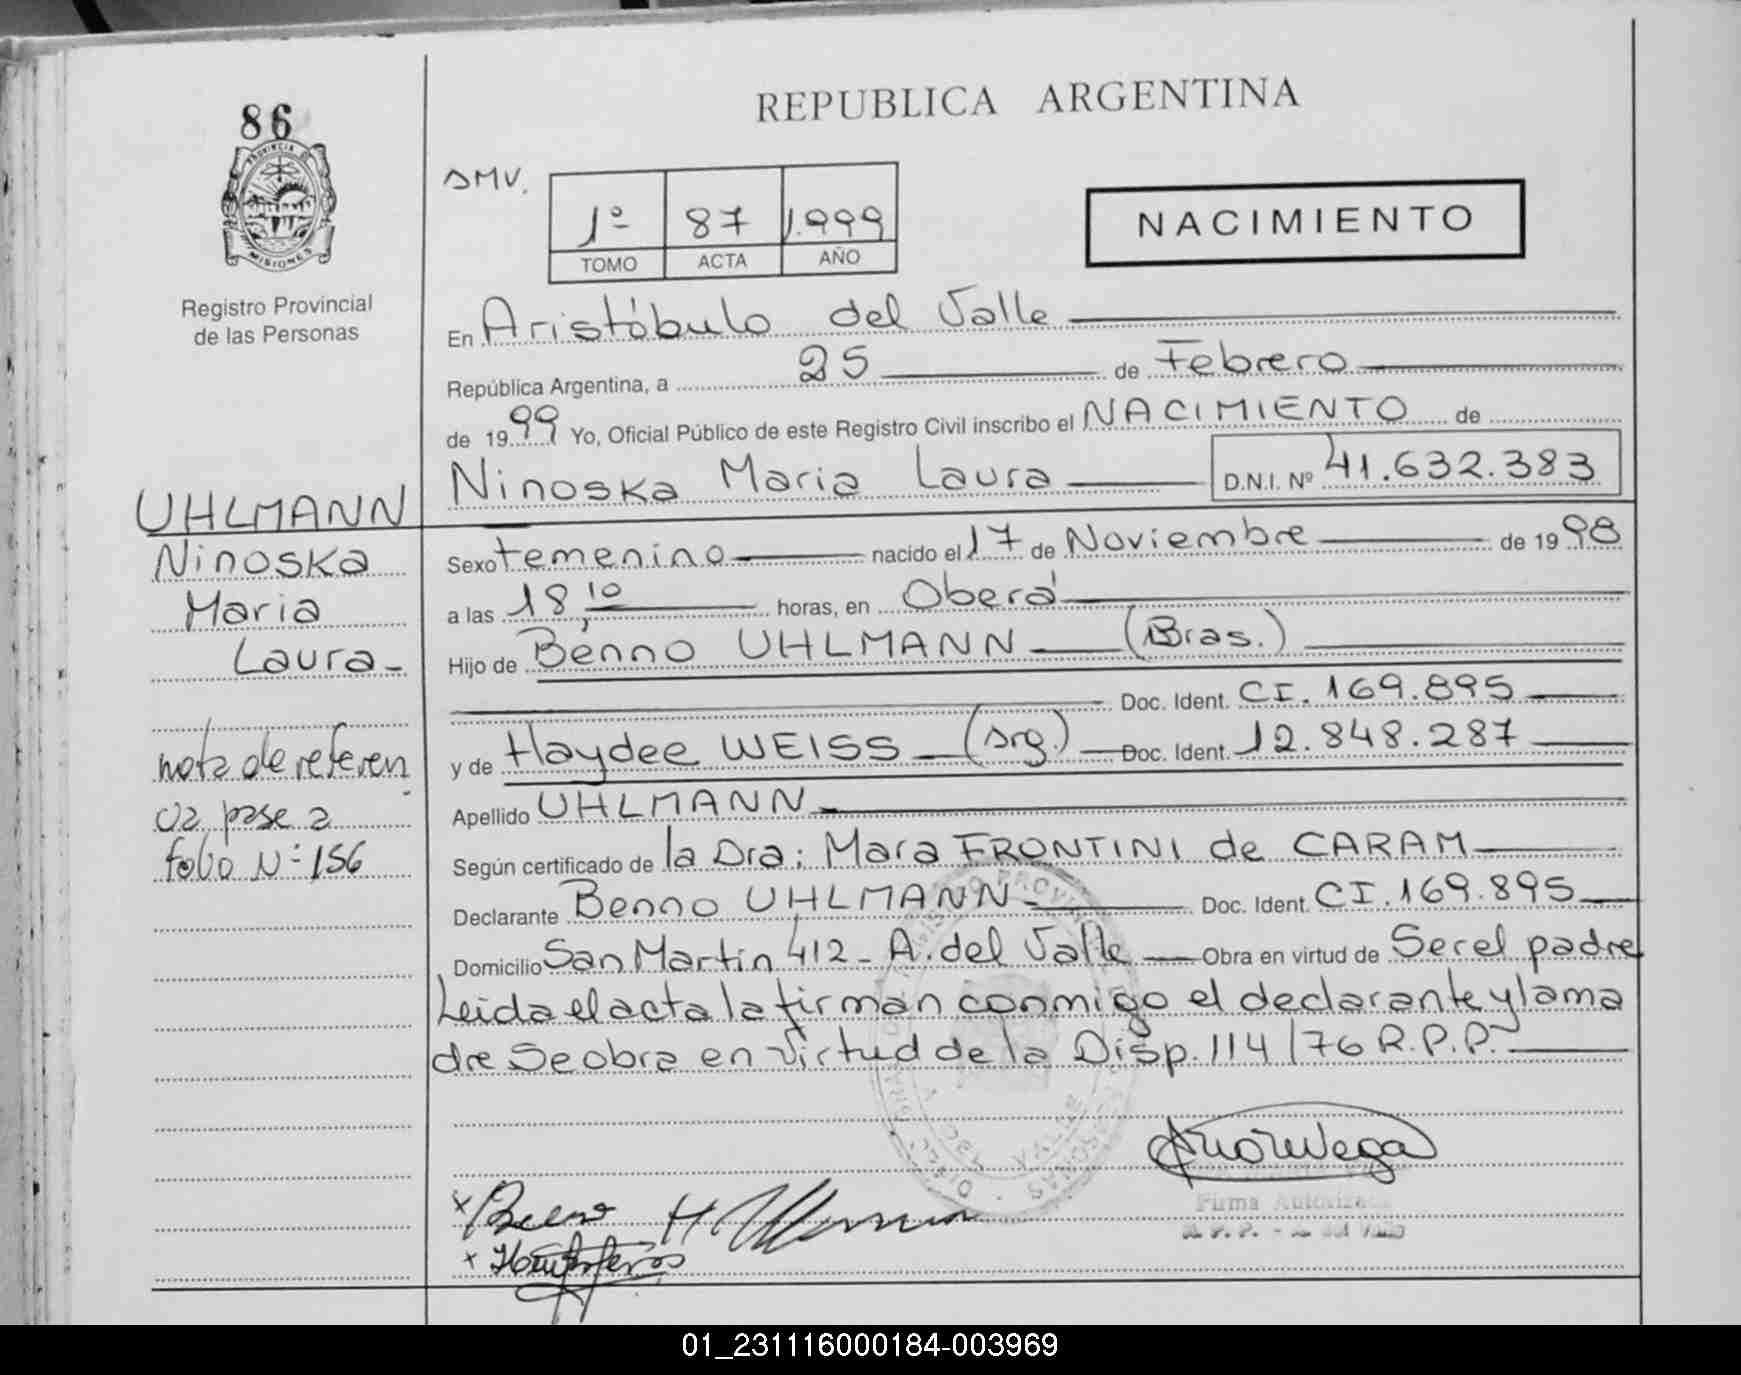 REPUBLICA ARGENTINA
86
PROVINCIA DE
MISIONES
Registro Provincial
de las Personas
SMV.
1º 87 1.999
TOMO ACTA AÑO
NACIMIENTO
En Aristóbulo del Valle
República Argentina, a 25 de Febrero
de 1999 Yo, Oficial Público de este Registro Civil inscribo el NACIMIENTO de
Ninoska Maria Laura D.N.I. Nº 41.632.383
UHLMANN
Ninoska
Maria
Laura-
nota de referen
cia pase a
folio Nº 156
Sexo femenino nacido el 17 de Noviembre de 1998
a las 18,10 horas, en Oberá
Hijo de Benno UHLMANN (Bras.)
Doc. Ident. CI. 169.895
y de Haydee WEISS (Arg.) Doc. Ident. 12.848.287
Apellido UHLMANN
Según certificado de la Dra: Mara FRONTINI de CARAM
Declarante Benno UHLMANN- Doc. Ident. CI. 169.895
Domicilio San Martin 412 - A. del Valle Obra en virtud de Ser el padre
Leida el acta la firman conmigo el declarante y la ma
dre Se obra en virtud de la Disp. 114/76 R.P.P.
Firma Autorizada
01_231116000184-003969